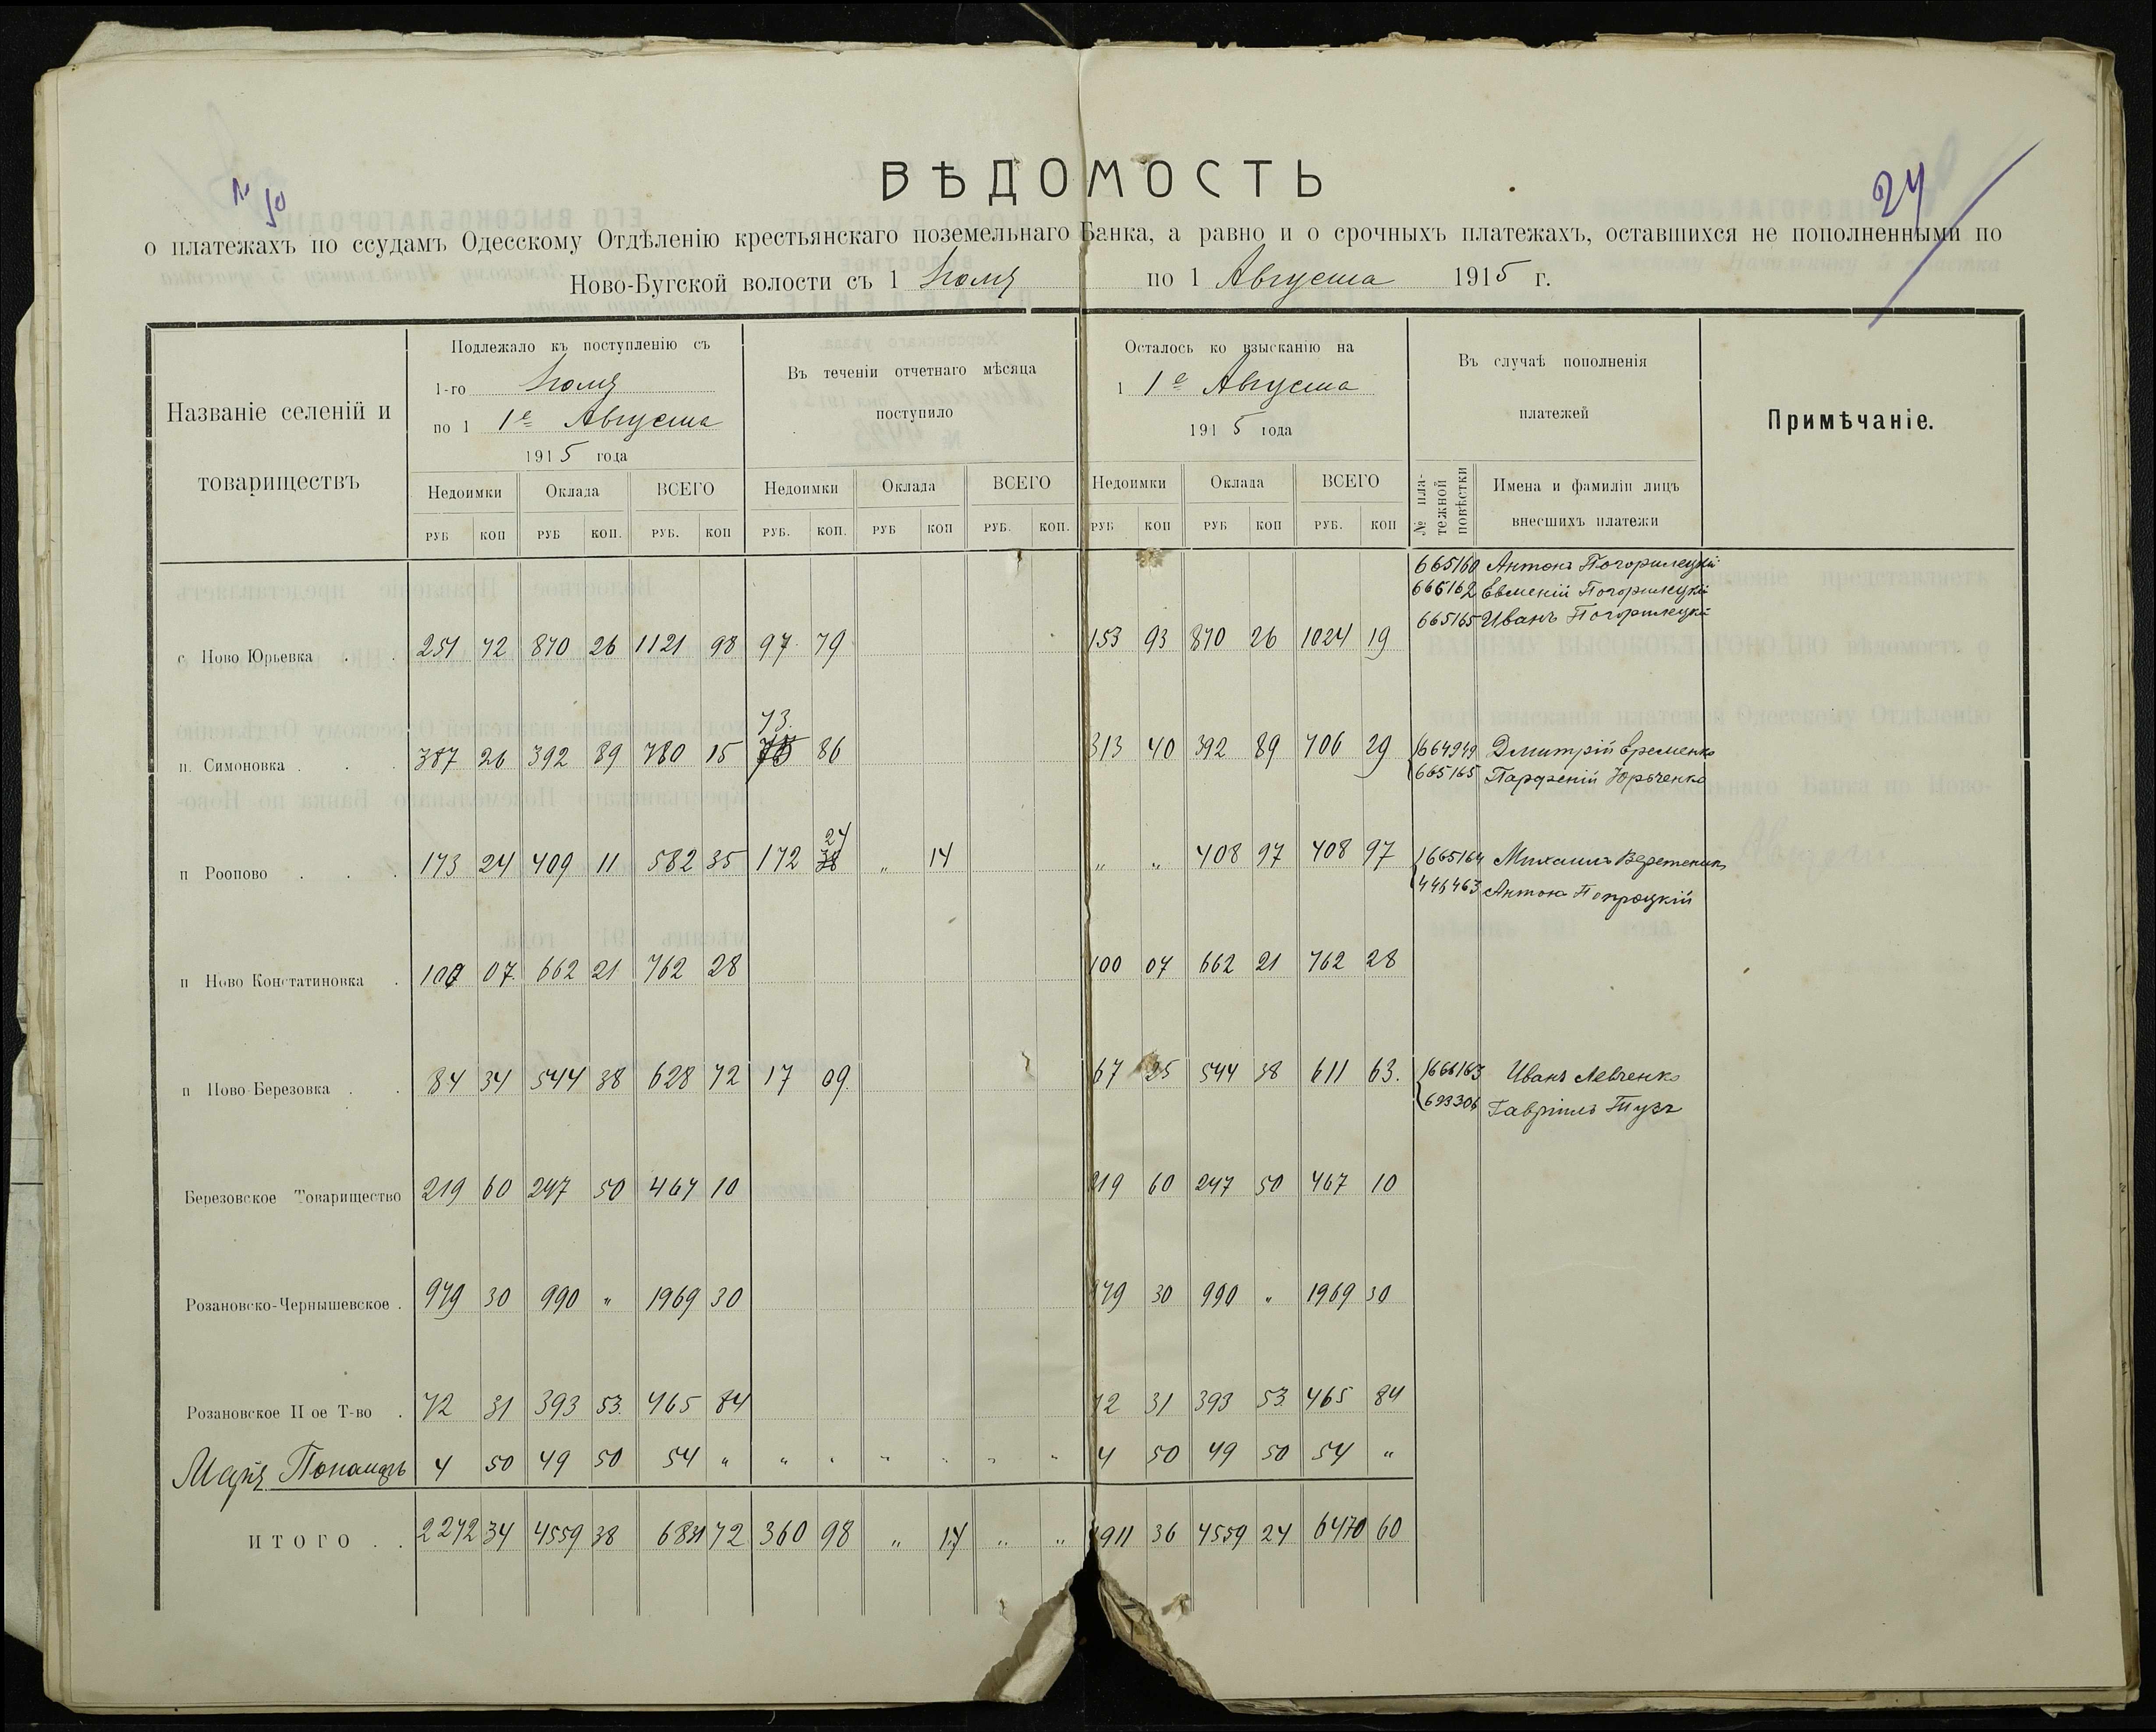 № 50
24
ВѢДОМОСТЬ
о платежахъ по ссудамъ Одесскому Отдѣленію крестьянскаго поземельнаго Банка, а равно и о срочныхъ платежахъ, оставшихся не пополненными по
Ново-Бугской волости съ 1 Іюля по 1 Августа 1915 г.
Названіе селеній и товариществъ
Подлежало къ поступленію съ
1-го Іюля
по 1 1е Августа
1915 года
Въ теченіи отчетнаго мѣсяца
поступило
Осталось ко взысканію на
1 1е Августа
1915 года
Въ случаѣ пополненія
платежей
Примѣчаніе.
Недоимки Оклада ВСЕГО Недоимки Оклада ВСЕГО Недоимки Оклада ВСЕГО
№ платежной повѣстки
Имена и фамиліи лицъ
внесшихъ платежи
РУБ КОП РУБ КОП. РУБ. КОП РУБ. КОП. РУБ КОП РУБ. КОП. РУБ КОП РУБ КОП РУБ. КОП
665160 Антонъ Погорилецкій
665162 Евменій Погорилецкій
665165 Иванъ Погорилецкій
с Ново Юрьевка 251 72 870 26 1121 98 97 79 153 93 870 26 1024 19
73.
п. Симоновка 387 26 392 89 780 15 86 313 40 392 89 706 29 664949 Дмитрій Еременко
665165 Парфеній Юрченко
24
п Роопово 173 24 409 11 582 35 172 38 „ 14 „ „ 408 97 408 97 665164 Михаилъ
446463 Антонъ Попроцкій
п Ново Констатиновка 100 07 662 21 762 28 100 07 662 21 762 28
п Ново-Березовка 84 34 544 38 628 72 17 09 67 25 544 38 611 63. 666163 Иванъ Левченко
693306 Гавріилъ Тузъ
Березовское Товарищество 219 60 247 50 467 10 219 60 247 50 467 10
Розановско-Чернышевское 979 30 990 „ 1969 30 979 30 990 „ 1969 30
Розановское II ое Т-во 72 31 393 53. 465 84 72 31 393 53 465 84
4 50 49 50 54 „ „ „ „ „ „ „ 4 50 49 50 54 „
ИТОГО 2272 34 4559 38 6831 72 360 98 „ 14 „ „ 1911 36 4559 24 6470 60